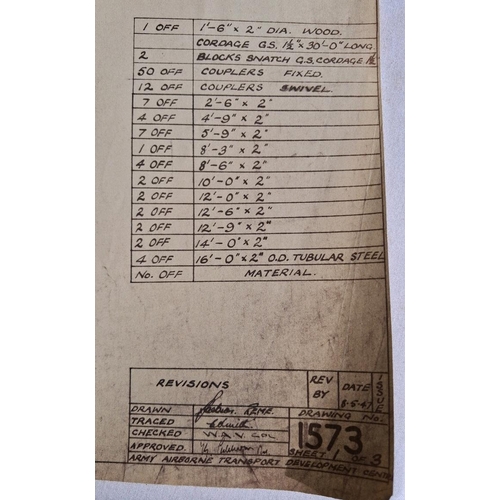 1 OFF 1'-6" x 2" DIA. WOOD.
CORDAGE G.S. 1½" x 30'-0" LONG.
2 BLOCKS SNATCH G.S. CORDAGE 1½
50 OFF COUPLERS FIXED.
12 OFF COUPLERS SWIVEL.
7 OFF 2'-6" x 2"
4 OFF 4'-9" x 2"
7 OFF 5'-9" x 2"
1 OFF 8'-3" x 2"
4 OFF 8'-6" x 2"
2 OFF 10'-0" x 2"
2 OFF 12'-0" x 2"
2 OFF 12'-6" x 2"
2 OFF 12'-9" x 2"
2 OFF 14'-0" x 2"
4 OFF 16'-0" x 2" O.D. TUBULAR STEEL
No. OFF MATERIAL.
REVISIONS REV BY DATE ISSUE
DRAWN REME. DRAWING No.
TRACED
CHECKED 1573
APPROVED. SHEET OF 3
ARMY AIRBORNE TRANSPORT DEVELOPMENT CENTRE